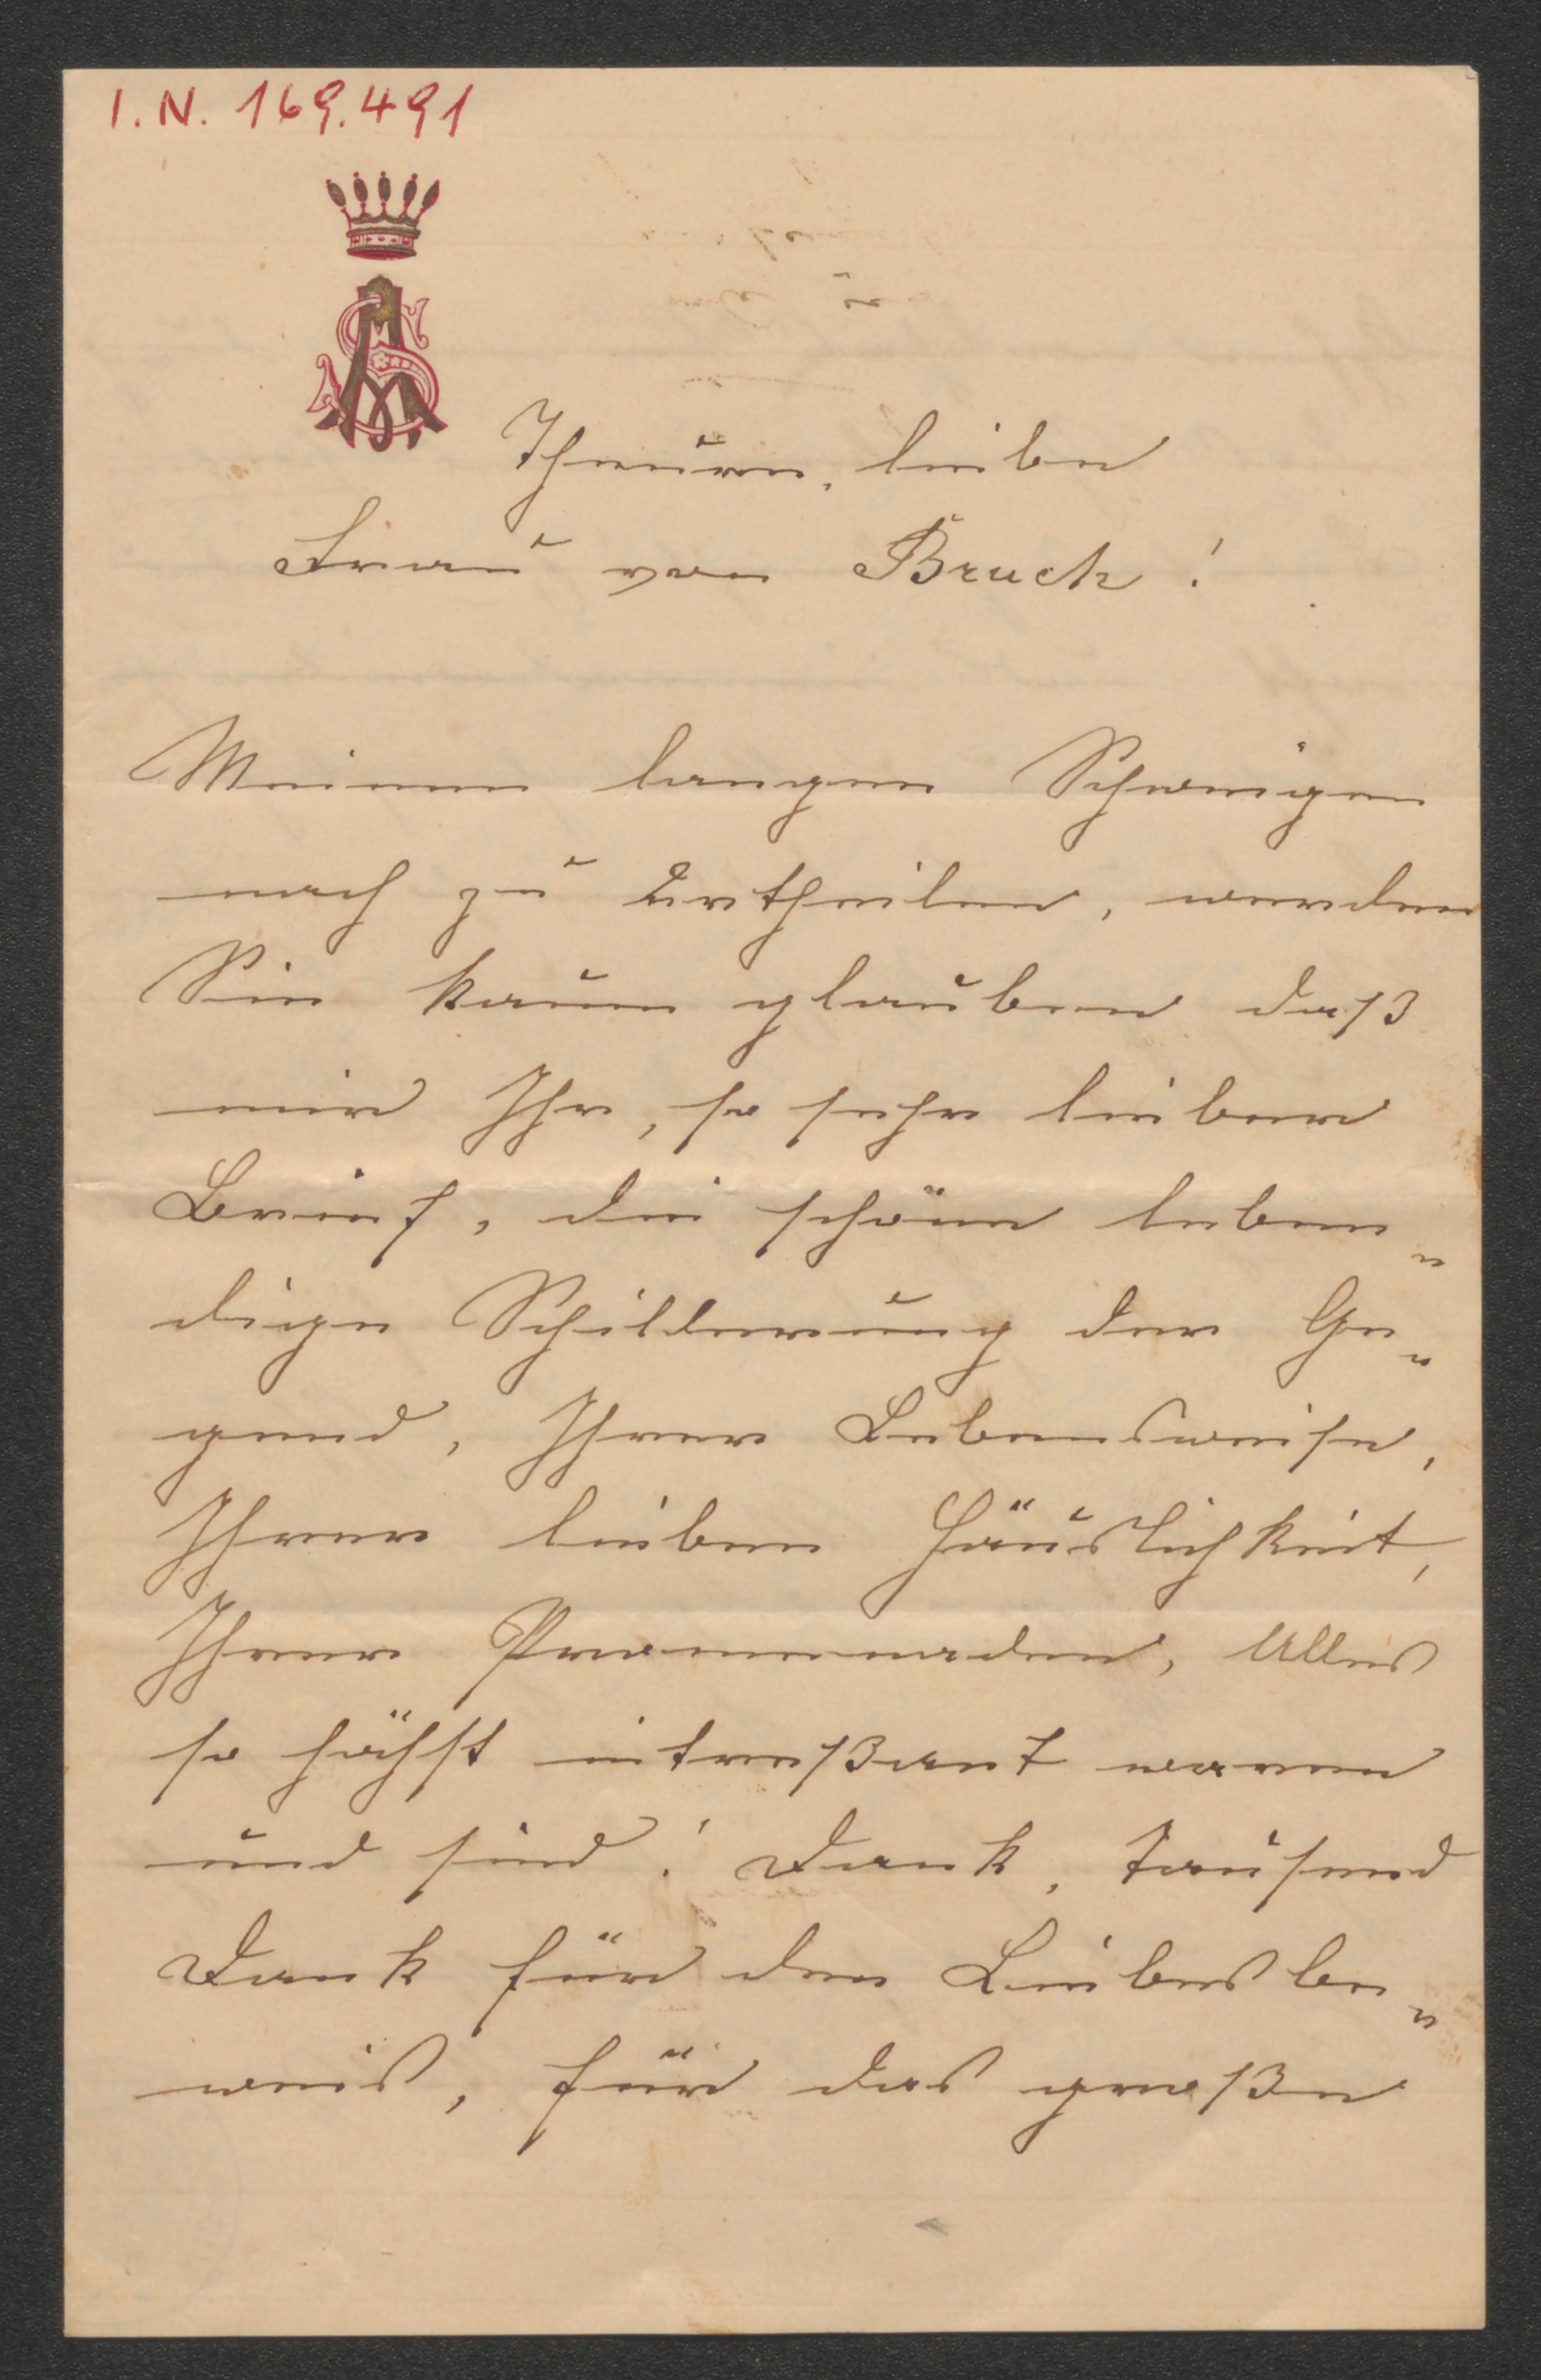 I. N. 169.491
AS
Theure, liebe
Frau von Bruck!
Meinem langen Schweigen
nach zu urtheilen, werden
Sie kaum glauben daß
mir Ihr, so sehr lieber
Brief, die schöne leben„
dige Schilderung der Ge„
gend, Ihrer Lebensweise,
Ihrer lieben Häuslichkeit,
Ihrer Promenaden, Alles
so höchst intreßant waren
und sind! Dank, tausend
Dank für den Liebesbe„
weis, für das große